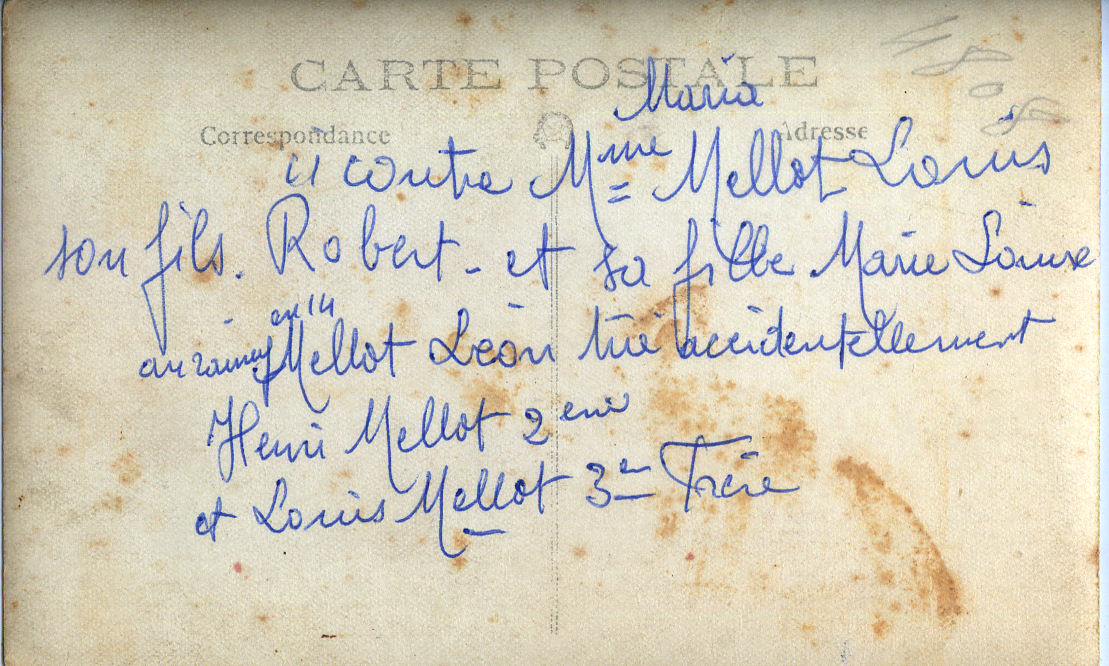 CARTE POSTALE
Correspondance
Adresse
Maria
ci contre Mme Mellot Louis
son fils. Robert - et sa fille Marie Louise
en 14
Mellot Léon tué accidentellement
Henri Mellot 2eme
et Louis Mellot 3em Frère